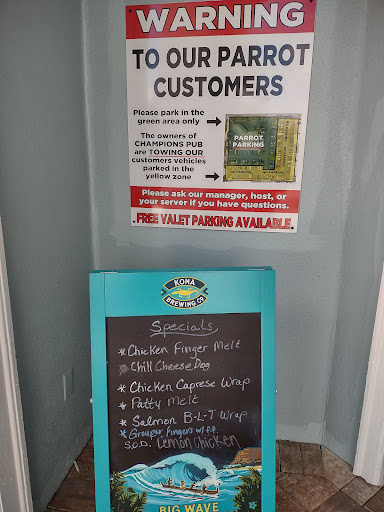 WARNING
TO OUR PARROT
CUSTOMERS
Please park in the
green area only
The owners of
CHAMPIONS PUB
are TOWING OUR
customers vehicles
parked in the
yellow zone
PARROT
PARKING
Please ask our manager, host, or
your server if you have questions.
FREE VALET PARKING AVAILABLE
KONA
BREWING CO
Specials
* Chicken Finger Melt
* Chili Cheese Dog
* Chicken Caprese Wrap
* Patty Melt
* Salmon B-L-T Wrap
* Grouper Fingers w/f.f.
S.O.D. Lemon Chicken
BIG WAVE